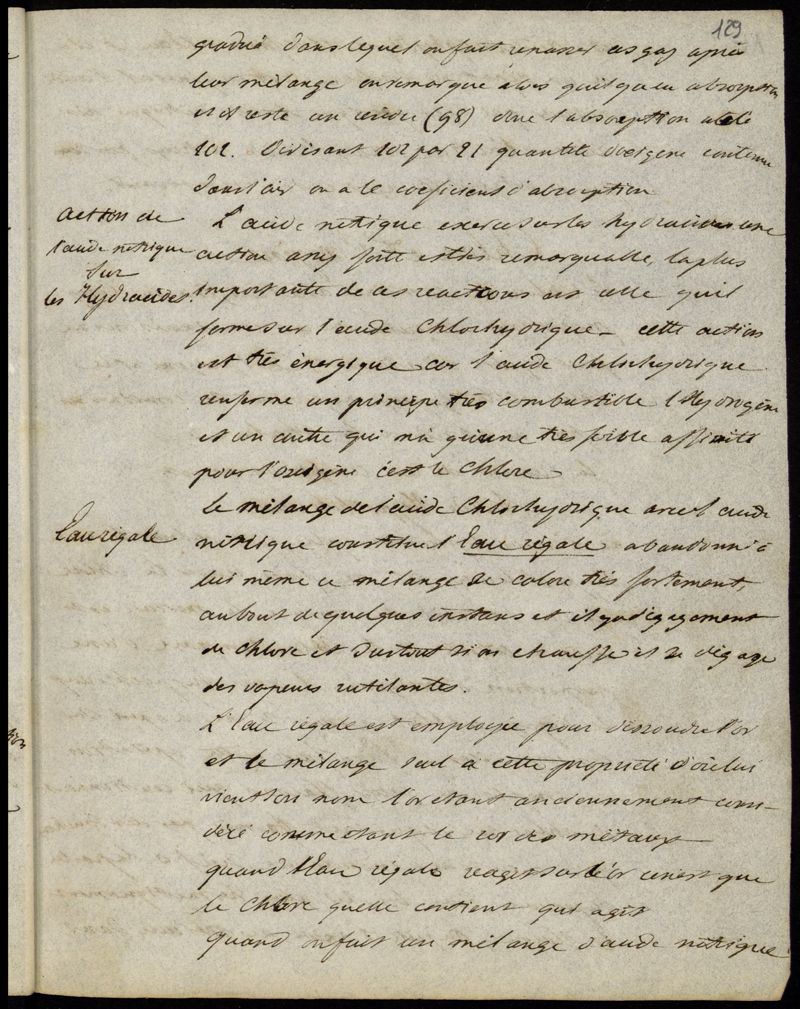 129
gradué dans lequel on fait repasser ces gaz après
leur mélange on remarque alors qu'il y a eu absorption
et il reste un résidu (98) donc l'absorption a été
102. Divisant 102 par 21 quantité d'oxigène contenue
dans l'air on a le coeficient d'absorption
Action de
l'acide nitrique
sur
les Hydracides.
L'acide nitrique exerce sur les hydracides une
action assez forte et très remarquable, la plus
importante de ces reactions est celle qu'il
forme sur l'acide Chlorhydrique – cette action
est très énergique car l'acide Chlorhydrique
renferme un principe très combustible l'Hydrogène
et un autre qui n'a qu'une très faible affinité
pour l'oxigène c'est le Chlore
Eau régale
Le mélange de l'acide Chlorhydrique avec l'acide
nitrique constitue l'Eau régale abandonné à
lui même ce mélange se colore très fortement,
au bout de quelques instans et il y a dégagement
de Chlore et surtout si on chauffe et se dégage
des vapeurs rutilantes.
L'Eau régale est employée pour dissoudre l'or
et le mélange seul a cette propriété d'où lui
vient son nom l'or étant anciennement consi-
déré comme étant le roi des métaux
quand l'Eau régale réagit sur l'or ce n'est que
le Chlore quelle contient qui agit
Quand on fait un mélange d'acide nitrique